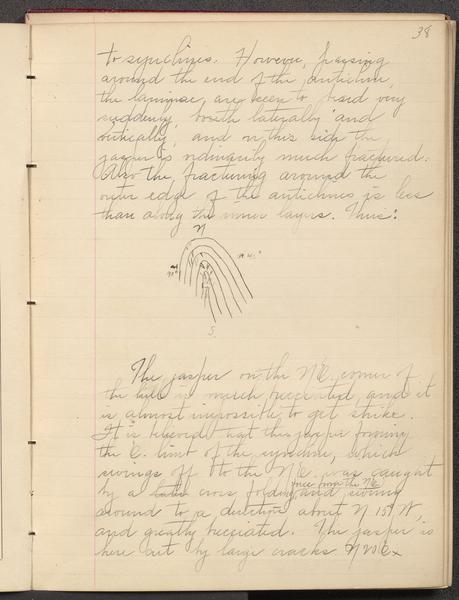 38
to synclines. However, passing
around the end of the anticline,
the laminae, are seen to bend very
suddenly, booth laterally and
vertically, and on this side the
jasper is ordinarily much fractured.
Also the fracturing around the
outer edge of the anticlines is less
than along the inner layers. Thus:
N
S.
The jasper on the N.E. corner of
the hill is much brecciated, and it
is almost impossible to get strike.
It is believed that this jasper forming
the E. limb of the syncline, which
swings off to the N.E. was caught
by a later cross folding, and swung
force from the N.E.
around to a direction about N 15° W,
and greatly brecciated. The jasper is
here cut by large cracks N 20 E.